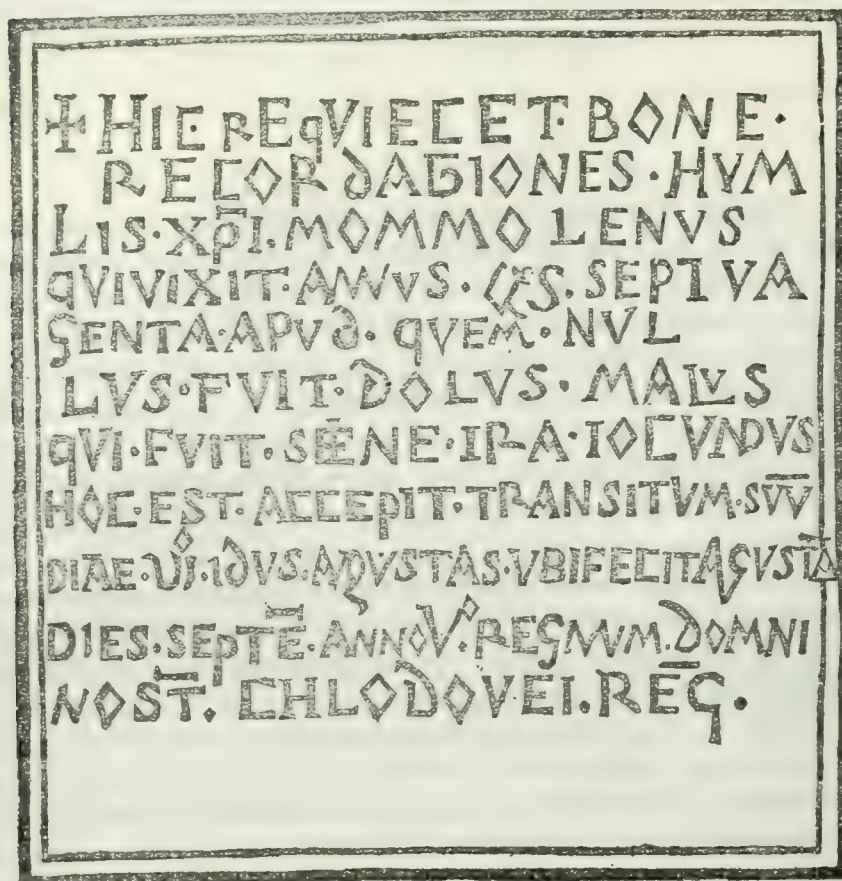 ✝ HIC· REqVIECET· BONE·
RECORDAGIONES · HVM
LIS · XP̄I · MOMMOLENVS
qVIVIXIT · ANNVS · LES · SEPTVA
GENTA · APVD · qVEM̄ · NVL
LVS · FVIT · DOLVS · MALVS
qVI · FVIT · SEÑE · IRA · IOCVNDVS
HOC · EST · ACCEPIT · TRANSITVM · SV̄V̄
DIAE · VI · IDVS · AGVSTAS · VBIFECIT AGVSTĀ
DIES · SEPTĒ · ANNO V° · REGNVM · DOMNI
NOST̄ · CHLODOVEI · RĒG ·